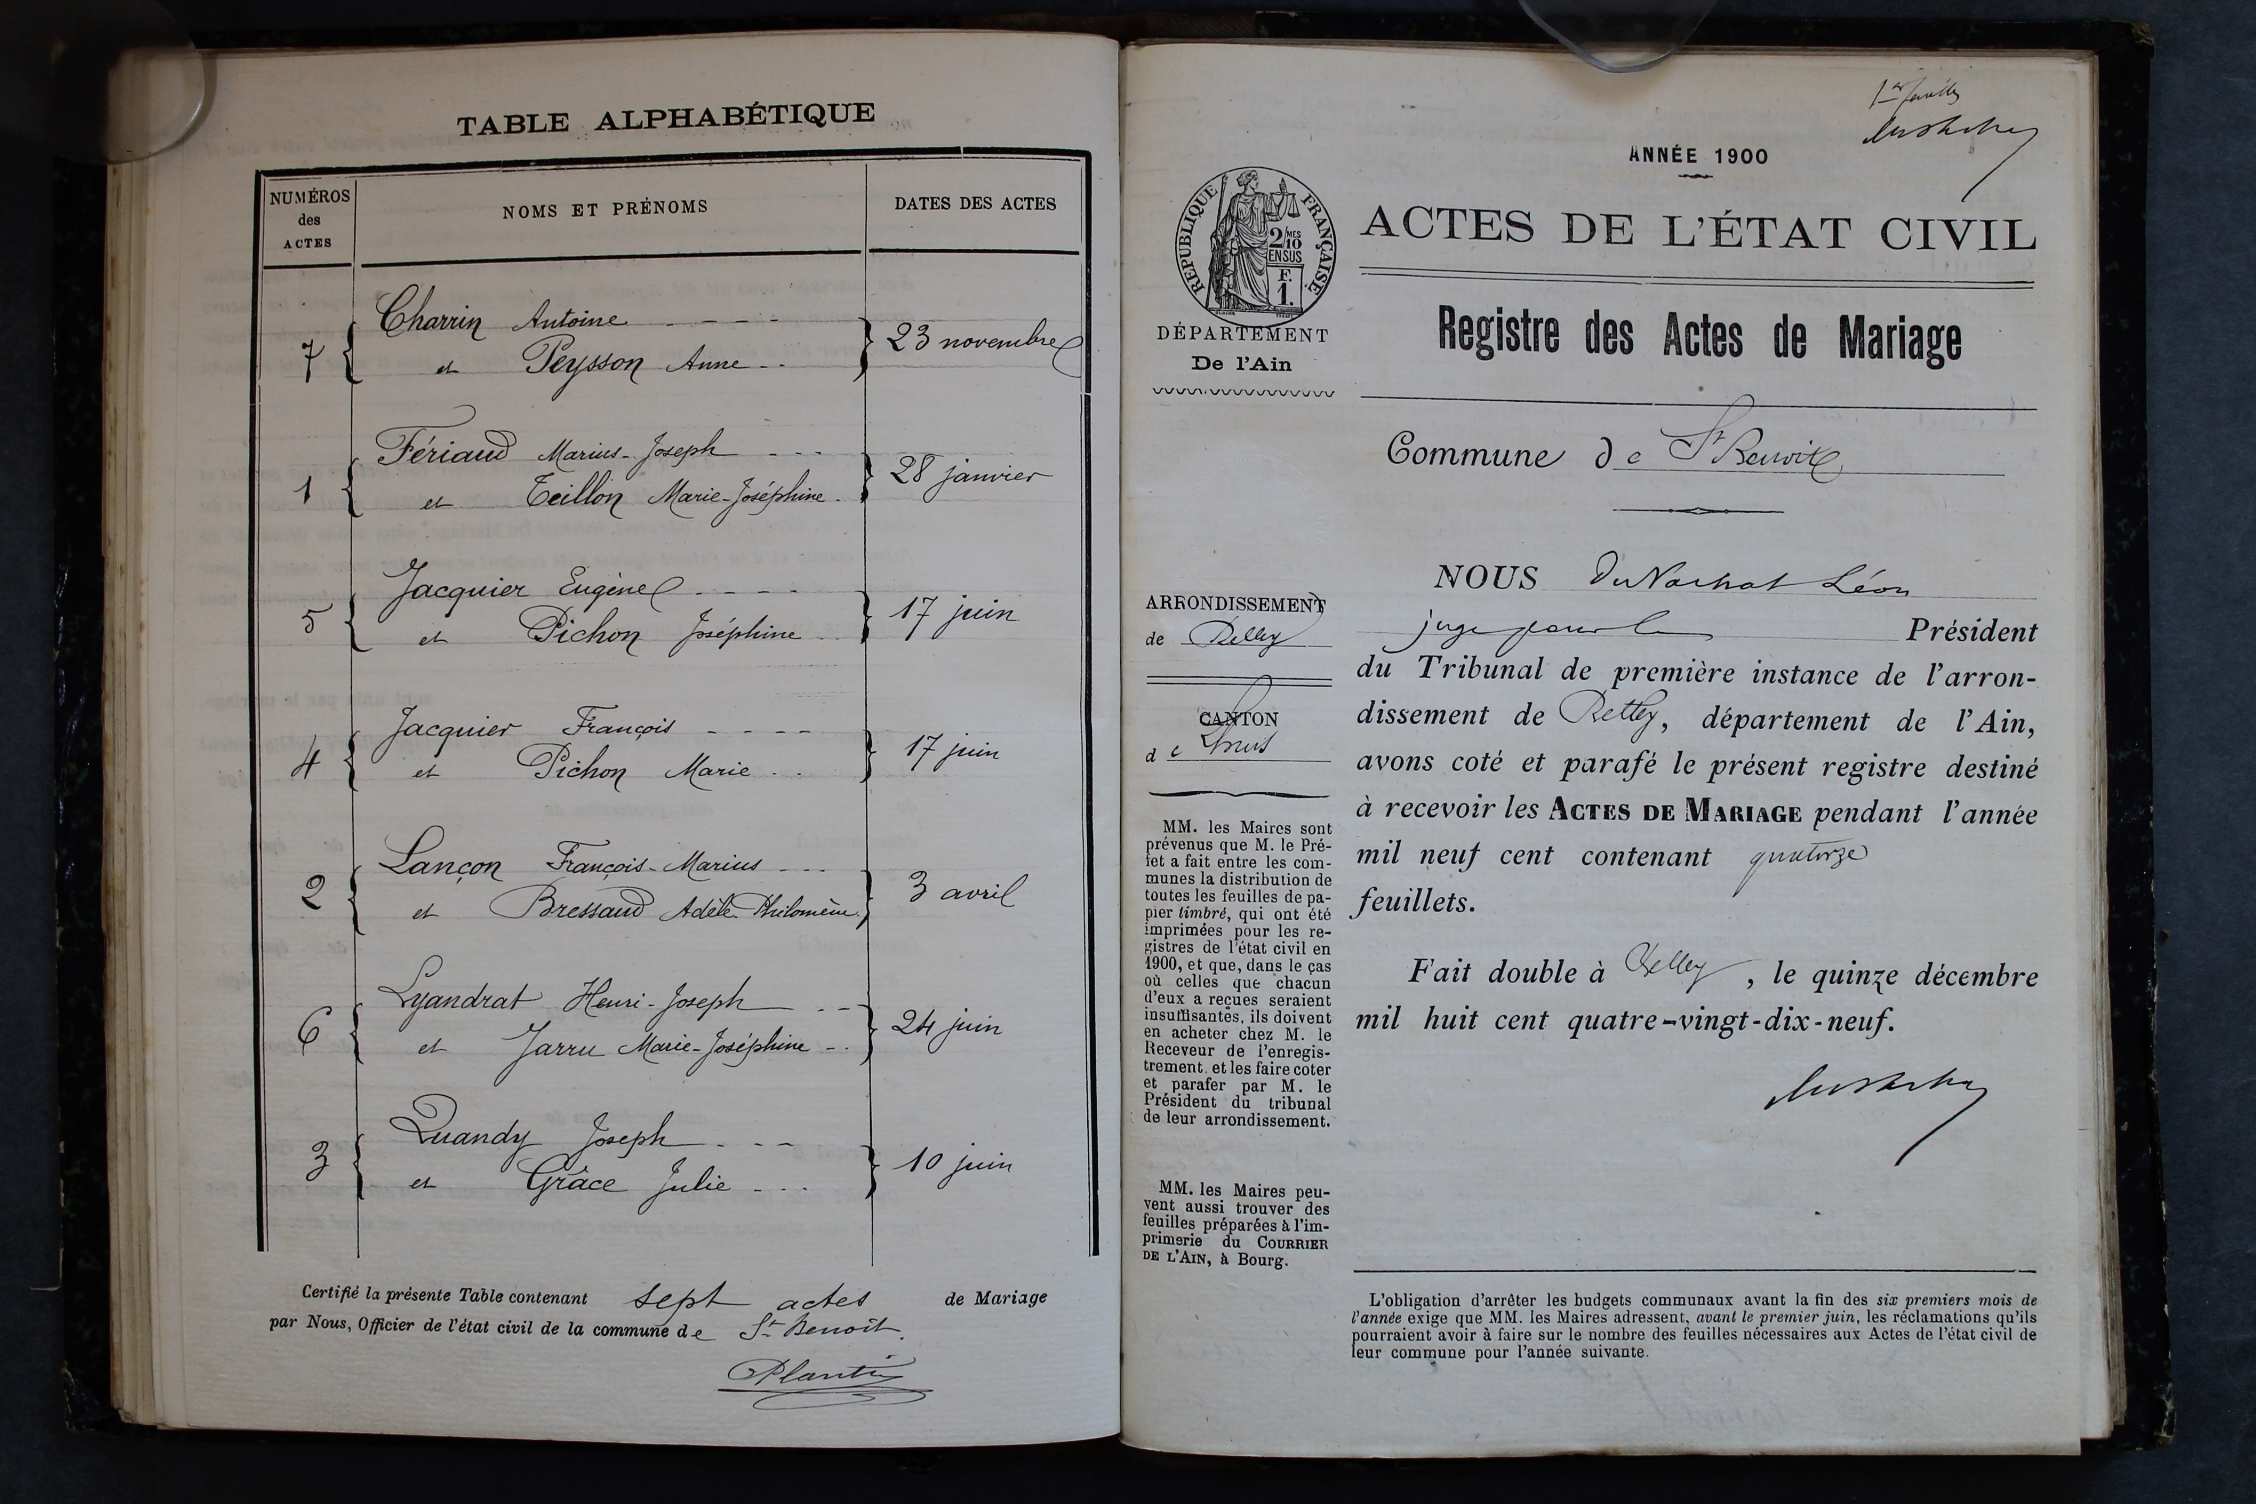 TABLE ALPHABÉTIQUE
NUMÉROS des ACTES
NOMS ET PRÉNOMS
DATES DES ACTES
7 Charrin Antoine et Peysson Anne 23 novembre
1 Fériaud Marius-Joseph et Teillon Marie-Joséphine 28 janvier
5 Jacquier Eugène et Pichon Joséphine 17 juin
4 Jacquier François et Pichon Marie 17 juin
2 Lançon François-Marius et Bressaud Adèle-Philomène 3 avril
6 Lyandrat Henri-Joseph et Jarru Marie-Joséphine 24 juin
3 Quandy Joseph et Grâce Julie 10 juin
Certifié la présente Table contenant sept actes de Mariage
par Nous, Officier de l'état civil de la commune de St Benoît.
1er feuillet
ANNÉE 1900
RÉPUBLIQUE FRANÇAISE
2/10 MES
EN SUS
F.
1.
DÉPARTEMENT
De l'Ain
ACTES DE L'ÉTAT CIVIL
Registre des Actes de Mariage
Commune de St Benoit
ARRONDISSEMENT
de Belley
CANTON
de Lhuis
MM. les Maires sont
prévenus que M. le Pré-
fet a fait entre les com-
munes la distribution de
toutes les feuilles de pa-
pier timbré, qui ont été
imprimées pour les re-
gistres de l'état civil en
1900, et que, dans le cas
où celles que chacun
d'eux a reçues seraient
insuffisantes, ils doivent
en acheter chez M. le
Receveur de l'enregis-
trement et les faire coter
et parafer par M. le
Président du tribunal
de leur arrondissement.
MM. les Maires peu-
vent aussi trouver des
feuilles préparées à l'im-
primerie du COURRIER
DE L'AIN, à Bourg.
NOUS Léon
juge pour le Président
du Tribunal de première instance de l'arron-
dissement de Belley, département de l'Ain,
avons coté et parafé le présent registre destiné
à recevoir les ACTES DE MARIAGE pendant l'année
mil neuf cent contenant quatorze
feuillets.
Fait double à Belley, le quinze décembre
mil huit cent quatre-vingt-dix-neuf.
L'obligation d'arrêter les budgets communaux avant la fin des six premiers mois de
l'année exige que MM. les Maires adressent, avant le premier juin, les réclamations qu'ils
pourraient avoir à faire sur le nombre des feuilles nécessaires aux Actes de l'état civil de
leur commune pour l'année suivante.